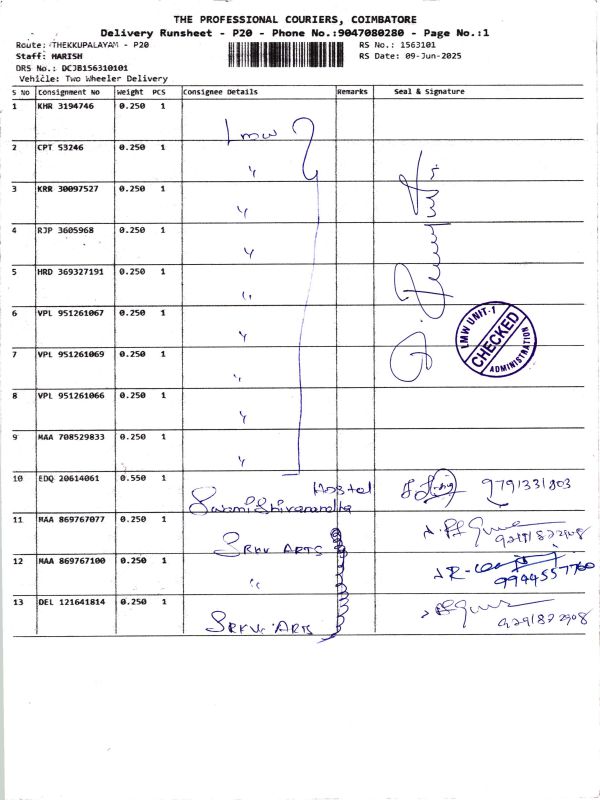 THE PROFESSIONAL COURIERS, COIMBATORE
Delivery Runsheet - P20 - Phone No.:9047080280 - Page No.:1
Route: THEKKUPALAYAM - P20
RS No.: 1563101
Staff: HARISH
RS Date: 09-Jun-2025
DRS No.: DCJB156310101
Vehicle: Two Wheeler Delivery
S No Consignment No Weight PCS Consignee Details Remarks Seal & Signature
1 KHR 3194746 0.250 1 Lmw
2 CPT 53246 0.250 1 "
3 KRR 30097527 0.250 1 "
4 RJP 3605968 0.250 1 "
5 HRD 369327191 0.250 1 "
6 VPL 951261067 0.250 1 "
LMW UNIT-1
CHECKED
ADMINISTRATION
7 VPL 951261069 0.250 1 "
8 VPL 951261066 0.250 1 "
9 MAA 708529833 0.250 1 "
10 EDQ 20614061 0.550 1 Hostel 9791331803
11 MAA 869767077 0.250 1 SRKV ARTS
12 MAA 869767100 0.250 1 " 9944557760
13 DEL 121641814 0.250 1 SRKV ARTS